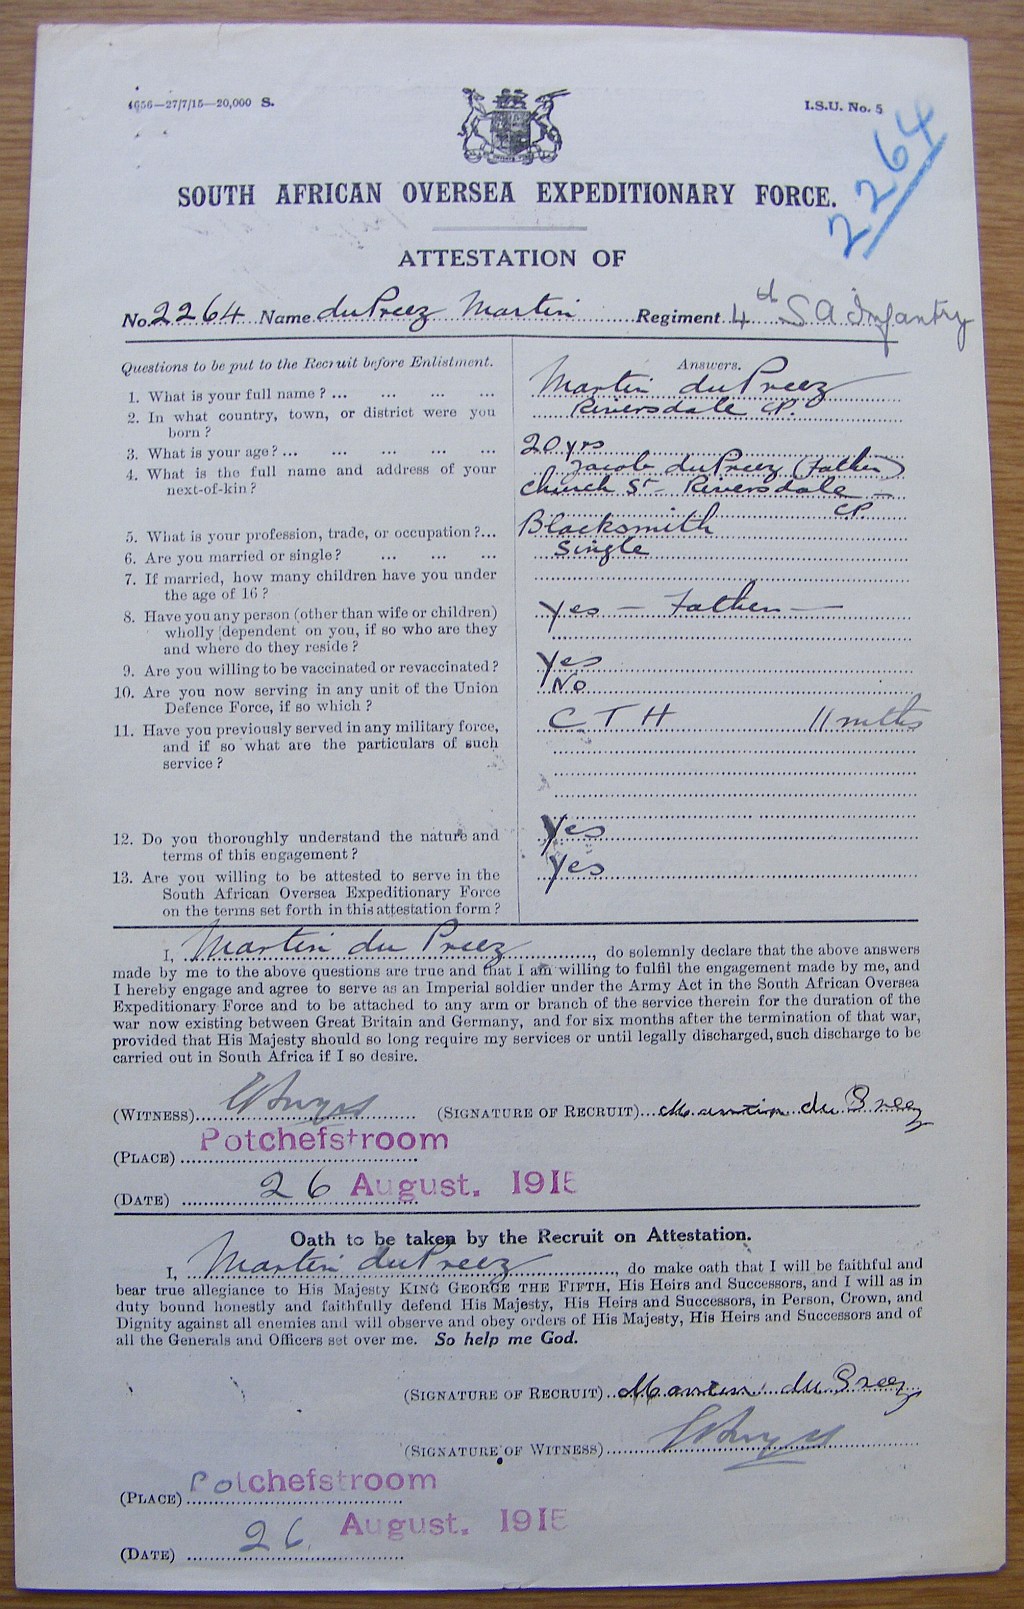 1656—27/7/15—20,000 S.
I.S.U. No. 5
2264
SOUTH AFRICAN OVERSEA EXPEDITIONARY FORCE.
ATTESTATION OF
No. 2264 Name du Preez Martin Regiment 4th S A Infantry
Questions to be put to the Recruit before Enlistment.
Answers.
1. What is your full name? ... ... ... ...
Martin du Preez
2. In what country, town, or district were you
born?
Riversdale CP.
3. What is your age? ... ... ... ... ...
20 yrs
4. What is the full name and address of your
next-of-kin?
Jacob du Preez (Father)
Church St - Riversdale -
CP.
5. What is your profession, trade, or occupation?...
Blacksmith
6. Are you married or single? ... ... ...
Single
7. If married, how many children have you under
the age of 16?
8. Have you any person (other than wife or children)
wholly dependent on you, if so who are they
and where do they reside?
Yes — Father —
9. Are you willing to be vaccinated or revaccinated?
Yes
10. Are you now serving in any unit of the Union
Defence Force, if so which?
No
11. Have you previously served in any military force,
and if so what are the particulars of such
service?
C T H 11 mths
12. Do you thoroughly understand the nature and
terms of this engagement?
Yes
13. Are you willing to be attested to serve in the
South African Oversea Expeditionary Force
on the terms set forth in this attestation form?
Yes
I, Martin du Preez, do solemnly declare that the above answers
made by me to the above questions are true and that I am willing to fulfil the engagement made by me, and
I hereby engage and agree to serve as an Imperial soldier under the Army Act in the South African Oversea
Expeditionary Force and to be attached to any arm or branch of the service therein for the duration of the
war now existing between Great Britain and Germany, and for six months after the termination of that war,
provided that His Majesty should so long require my services or until legally discharged, such discharge to be
carried out in South Africa if I so desire.
(WITNESS) (SIGNATURE OF RECRUIT) Martin du Preez
(PLACE) Potchefstroom
(DATE) 26 August. 1915
Oath to be taken by the Recruit on Attestation.
I, Martin du Preez, do make oath that I will be faithful and
bear true allegiance to His Majesty KING GEORGE THE FIFTH, His Heirs and Successors, and I will as in
duty bound honestly and faithfully defend His Majesty, His Heirs and Successors, in Person, Crown, and
Dignity against all enemies and will observe and obey orders of His Majesty, His Heirs and Successors and of
all the Generals and Officers set over me. So help me God.
(SIGNATURE OF RECRUIT) Martin du Preez
(SIGNATURE OF WITNESS)
(PLACE) Potchefstroom
(DATE) 26 August. 1915